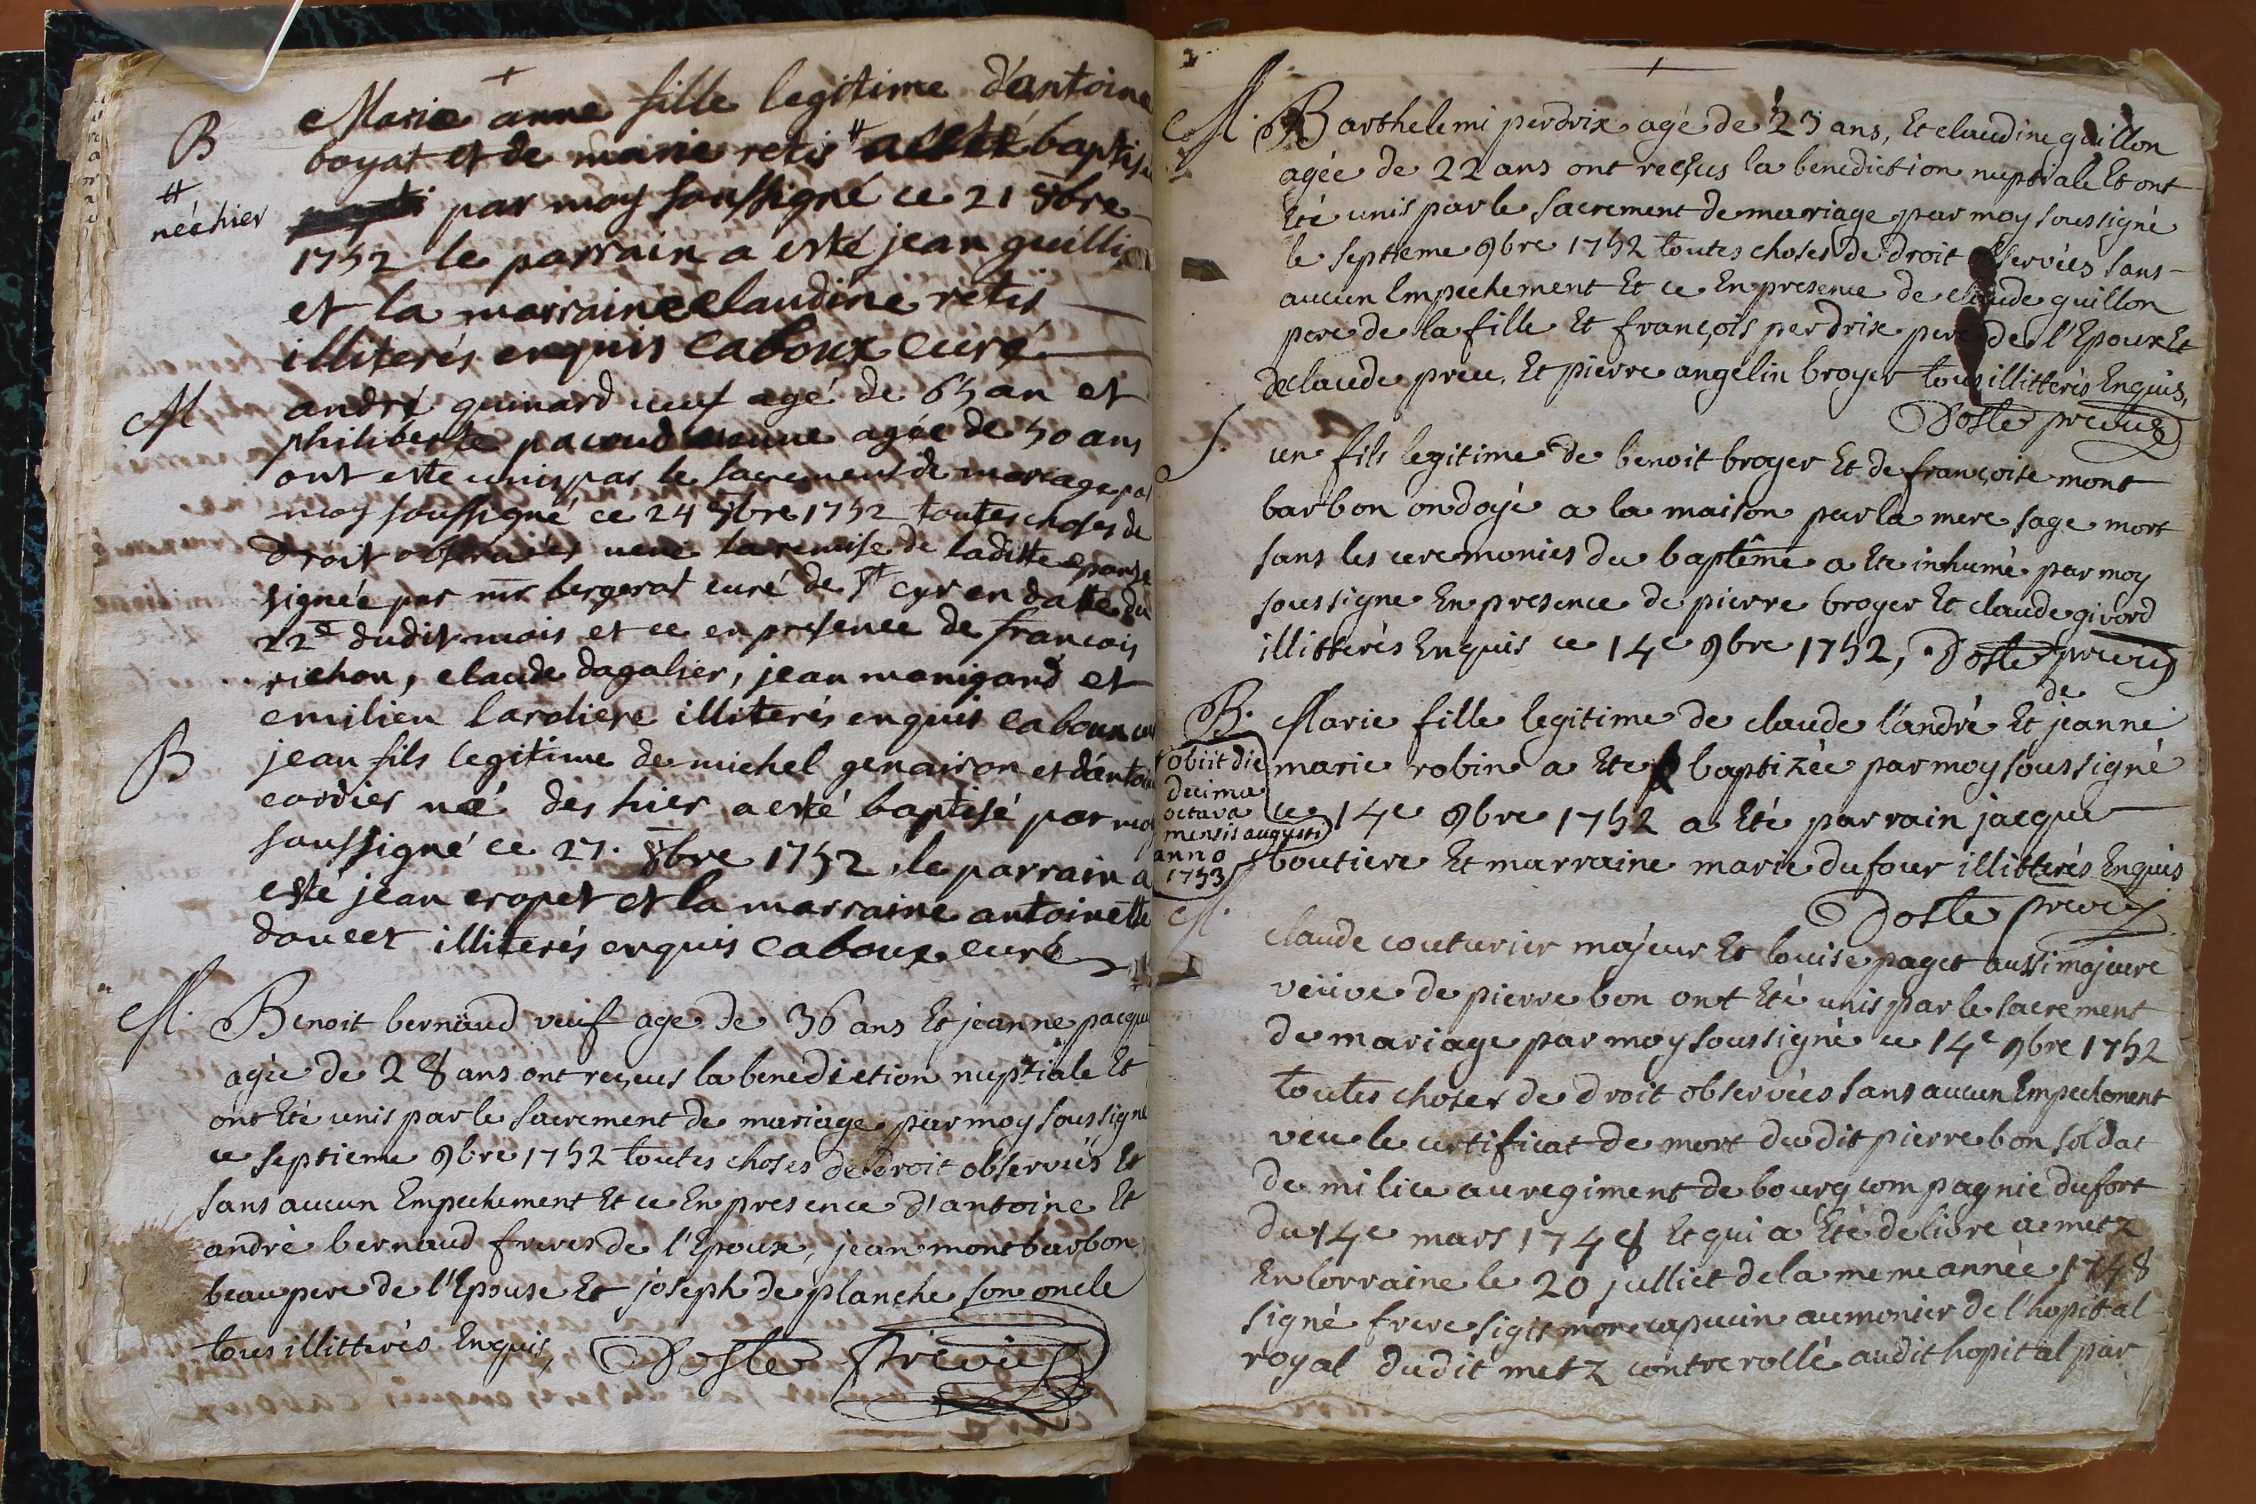 +
B
Marie anne fille legitime d'antoine
boyat et de marie retis # a esté baptisé
#
née hier
par moy soussigné ce 21 8bre
1752 le parrain a esté jean
et la marraine claudine retis
illiterés enquis caboux curé
M
andré guinard veuf agé de 65 an et
philiberte pacoud veuve agée de 50 ans
ont esté unis par le sacrement de mariage par
moy soussigné ce 24 8bre 1752 toutes choses de
droit observées veue la remise de laditte epouse
signée par mr bergerat curé de st cyr en datte du
22e dudit mois et ce en presence de francois
richon, claude dagalier, jean monigand et
emilien laroliere illiterés enquis caboux
B
jean fils legitime de michel genairon et
cordier né des hier a esté baptisé par moy
soussigné ce 27. 8bre 1752 le parrain a
esté jean cropet et la marraine antoinette
doucet illiterés enquis caboux curé
M.
Benoit bernaud veuf age de 36 ans Et jeanne
agée de 28 ans ont reçeus la benediction nuptiale Et
ont Eté unis par le sacrement de mariage par moy soussigné
ce septieme 9bre 1752 toutes choses de droit observées Et
sans aucun Empechement Et ce En presence d'antoine Et
andré bernaud freres de l'Epoux, jean montbarbon
beaupere de l'Epouse Et joseph de planche son oncle
tous illitterés Enquis,
+
M.
Barthelemi perdrix agé de 23 ans, Et claudine guillon
agée de 22 ans ont reçus la benediction nuptiale Et ont
Eté unis par le sacrement de mariage par moy soussigné
le septieme 9bre 1752 toutes choses de droit observées sans
aucun Empechement Et ce En presence de claude guillon
pere de la fille Et françois perdrix pere de l'Epoux Et
de claude preu, Et pierre angelin broyer tous illitterés Enquis,
S.
un fils legitime de benoit broyer Et de françoise mont
barbon ondoyé a la maison par la mere sage mort
sans les ceremonies du baptême a Ete inhumé par moy
soussigne En presence de pierre broyer Et claude givord
illitterés Enquis ce 14e 9bre 1752,
B.
Marie fille legitime de claude l'andré Et de jeanne
marie robin a Ete baptizée par moy soussigné
obiit die
decima
octava
mensis augusti
anno
1753
ce 14e 9bre 1752 a Eté parrain jacque
boutiere Et marraine marie dufour illitterés Enquis
M.
claude couturier majeur Et louise paget aussi majeure
veüve de pierre bon ont Eté unis par le sacrement
de mariage par moy soussigné ce 14e 9bre 1752
toutes choses de droit observées sans aucun Empechement
veu le certificat de mort dudit pierre bon soldat
de milice au regiment de bourg compagnie dufort
du 14e mars 1748 Et qui a Eté delivre a metz
En lorraine le 20 julliet de la meme année 1748
signé frere capucin aumonier de l'hopital
royal dudit metz contrerollé audit hopital par